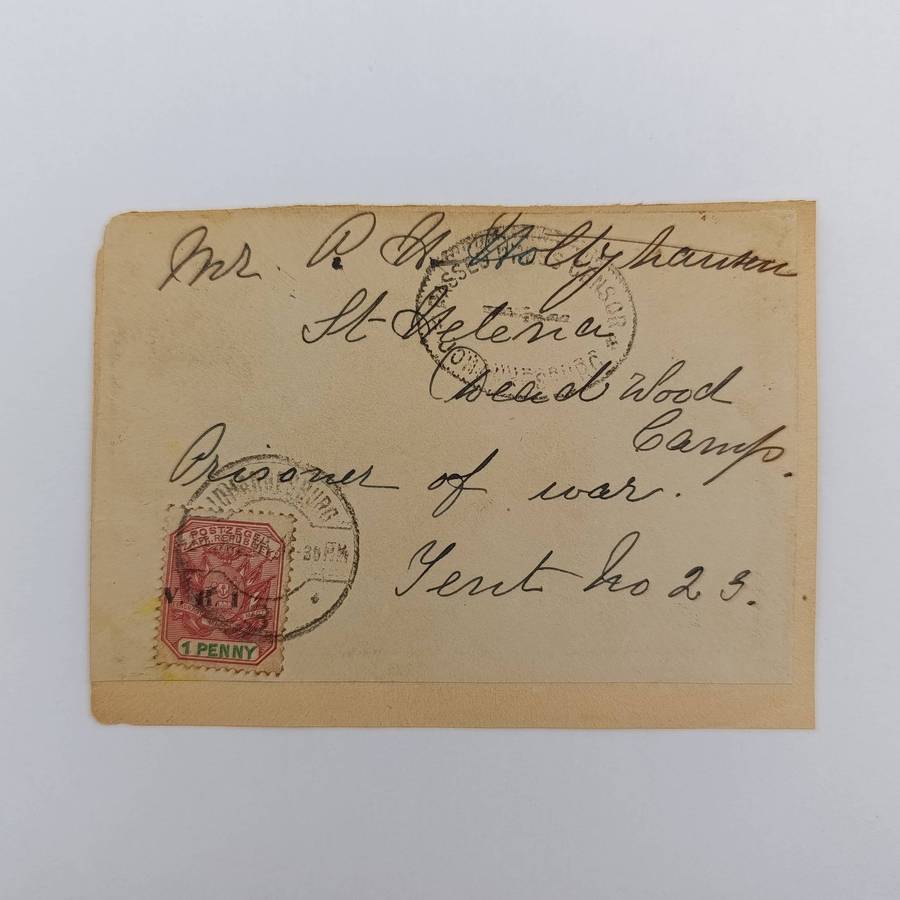 Mr. P. H. Holtzhausen
St Helena
Dead Wood
Camp.
Prisoner of war.
Tent No 23.
PASSED PRESS CENSOR
JOHANNESBURG
JOHANNESBURG
POSTZEGEL
Z. AFR. REPUBLIEK
V. R. I.
1 PENNY